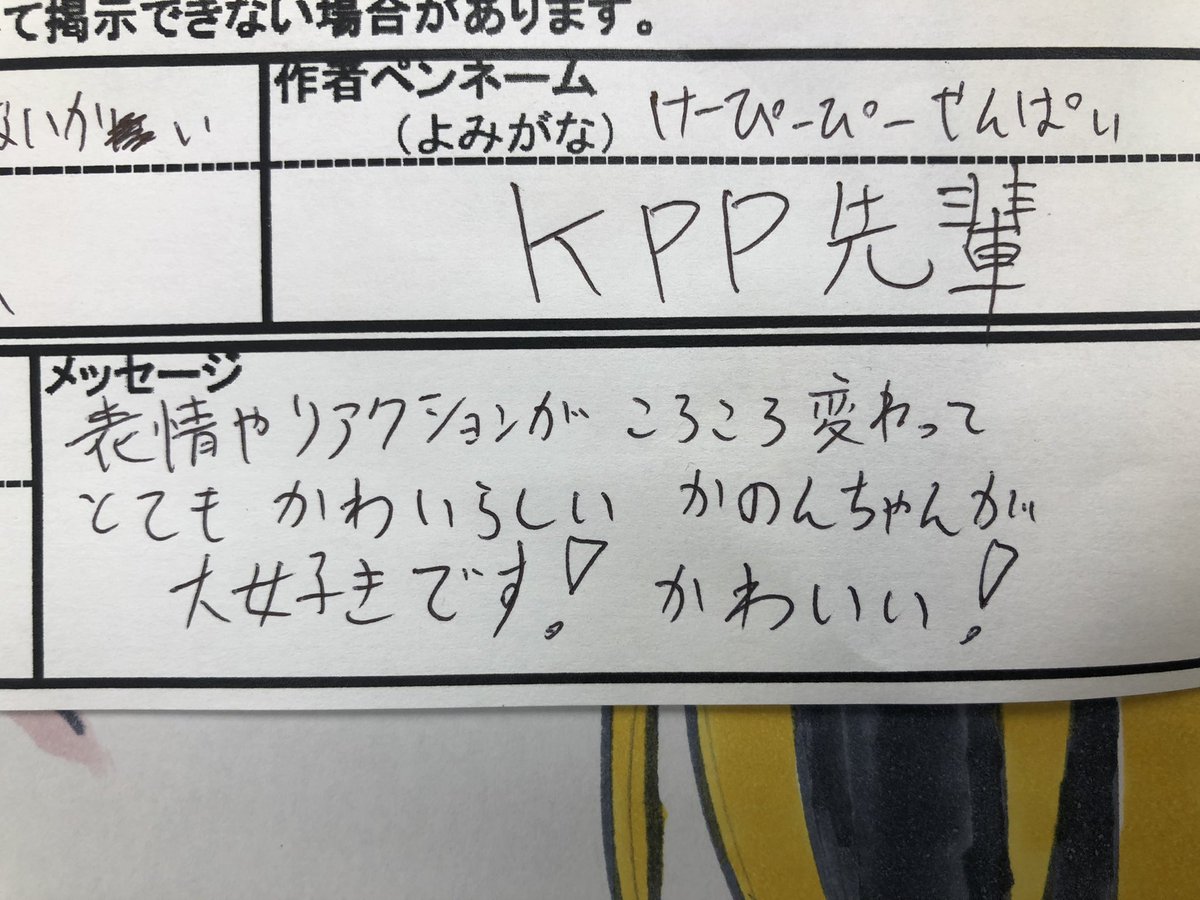 て掲示できない場合があります。
いが い
作者ペンネーム
(よみがな) けーぴーぴーせんぱい
KPP先輩
メッセージ
表情やリアクションがころころ変わって
とてもかわいらしい かのんちゃんが
大好きです! かわいい!